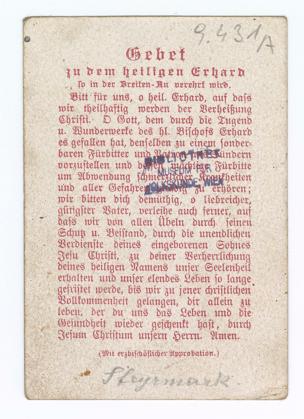 9.431/A
Gebet
zu dem heiligen Erhard
so in der Breiten-Au verehrt wird.
Bitt für uns, o heil. Erhard, auf dass
wir theilhaftig werden der Verheißung
Christi. O Gott, dem durch die Tugend
u. Wunderwerke des hl. Bischofs Erhard
es gefallen hat, denselben zu einem sonder-
baren Fürbitter und Patron den Sündern
vorzustellen, und dessen mächtige Fürbitte
um Abwendung schmerzlicher Krankheiten
und aller Gefahren gnädig zu erhören;
wir bitten dich demüthig, o liebreicher,
gütigster Vater, verleihe auch ferner, auf
dass wir von allen Übeln durch seinen
Schutz u. Beistand, durch die unendlichen
Verdienste deines eingeborenen Sohnes
Jesu Christi, zu deiner Verherrlichung
deines heiligen Namens unser Seelenheil
erhalten und unser elendes Leben so lange
gefristet werde, bis wir zu jener christlichen
Vollkommenheit gelangen, dir allein zu
leben, der du uns das Leben und die
Gesundheit wieder geschenkt hast, durch
Jesum Christum unsern Herrn. Amen.
(Mit erzbischöflicher Approbation.)
BIBLIOTHEK
MUSEUM FÜR
VOLKSKUNDE, WIEN
Steyrmark.